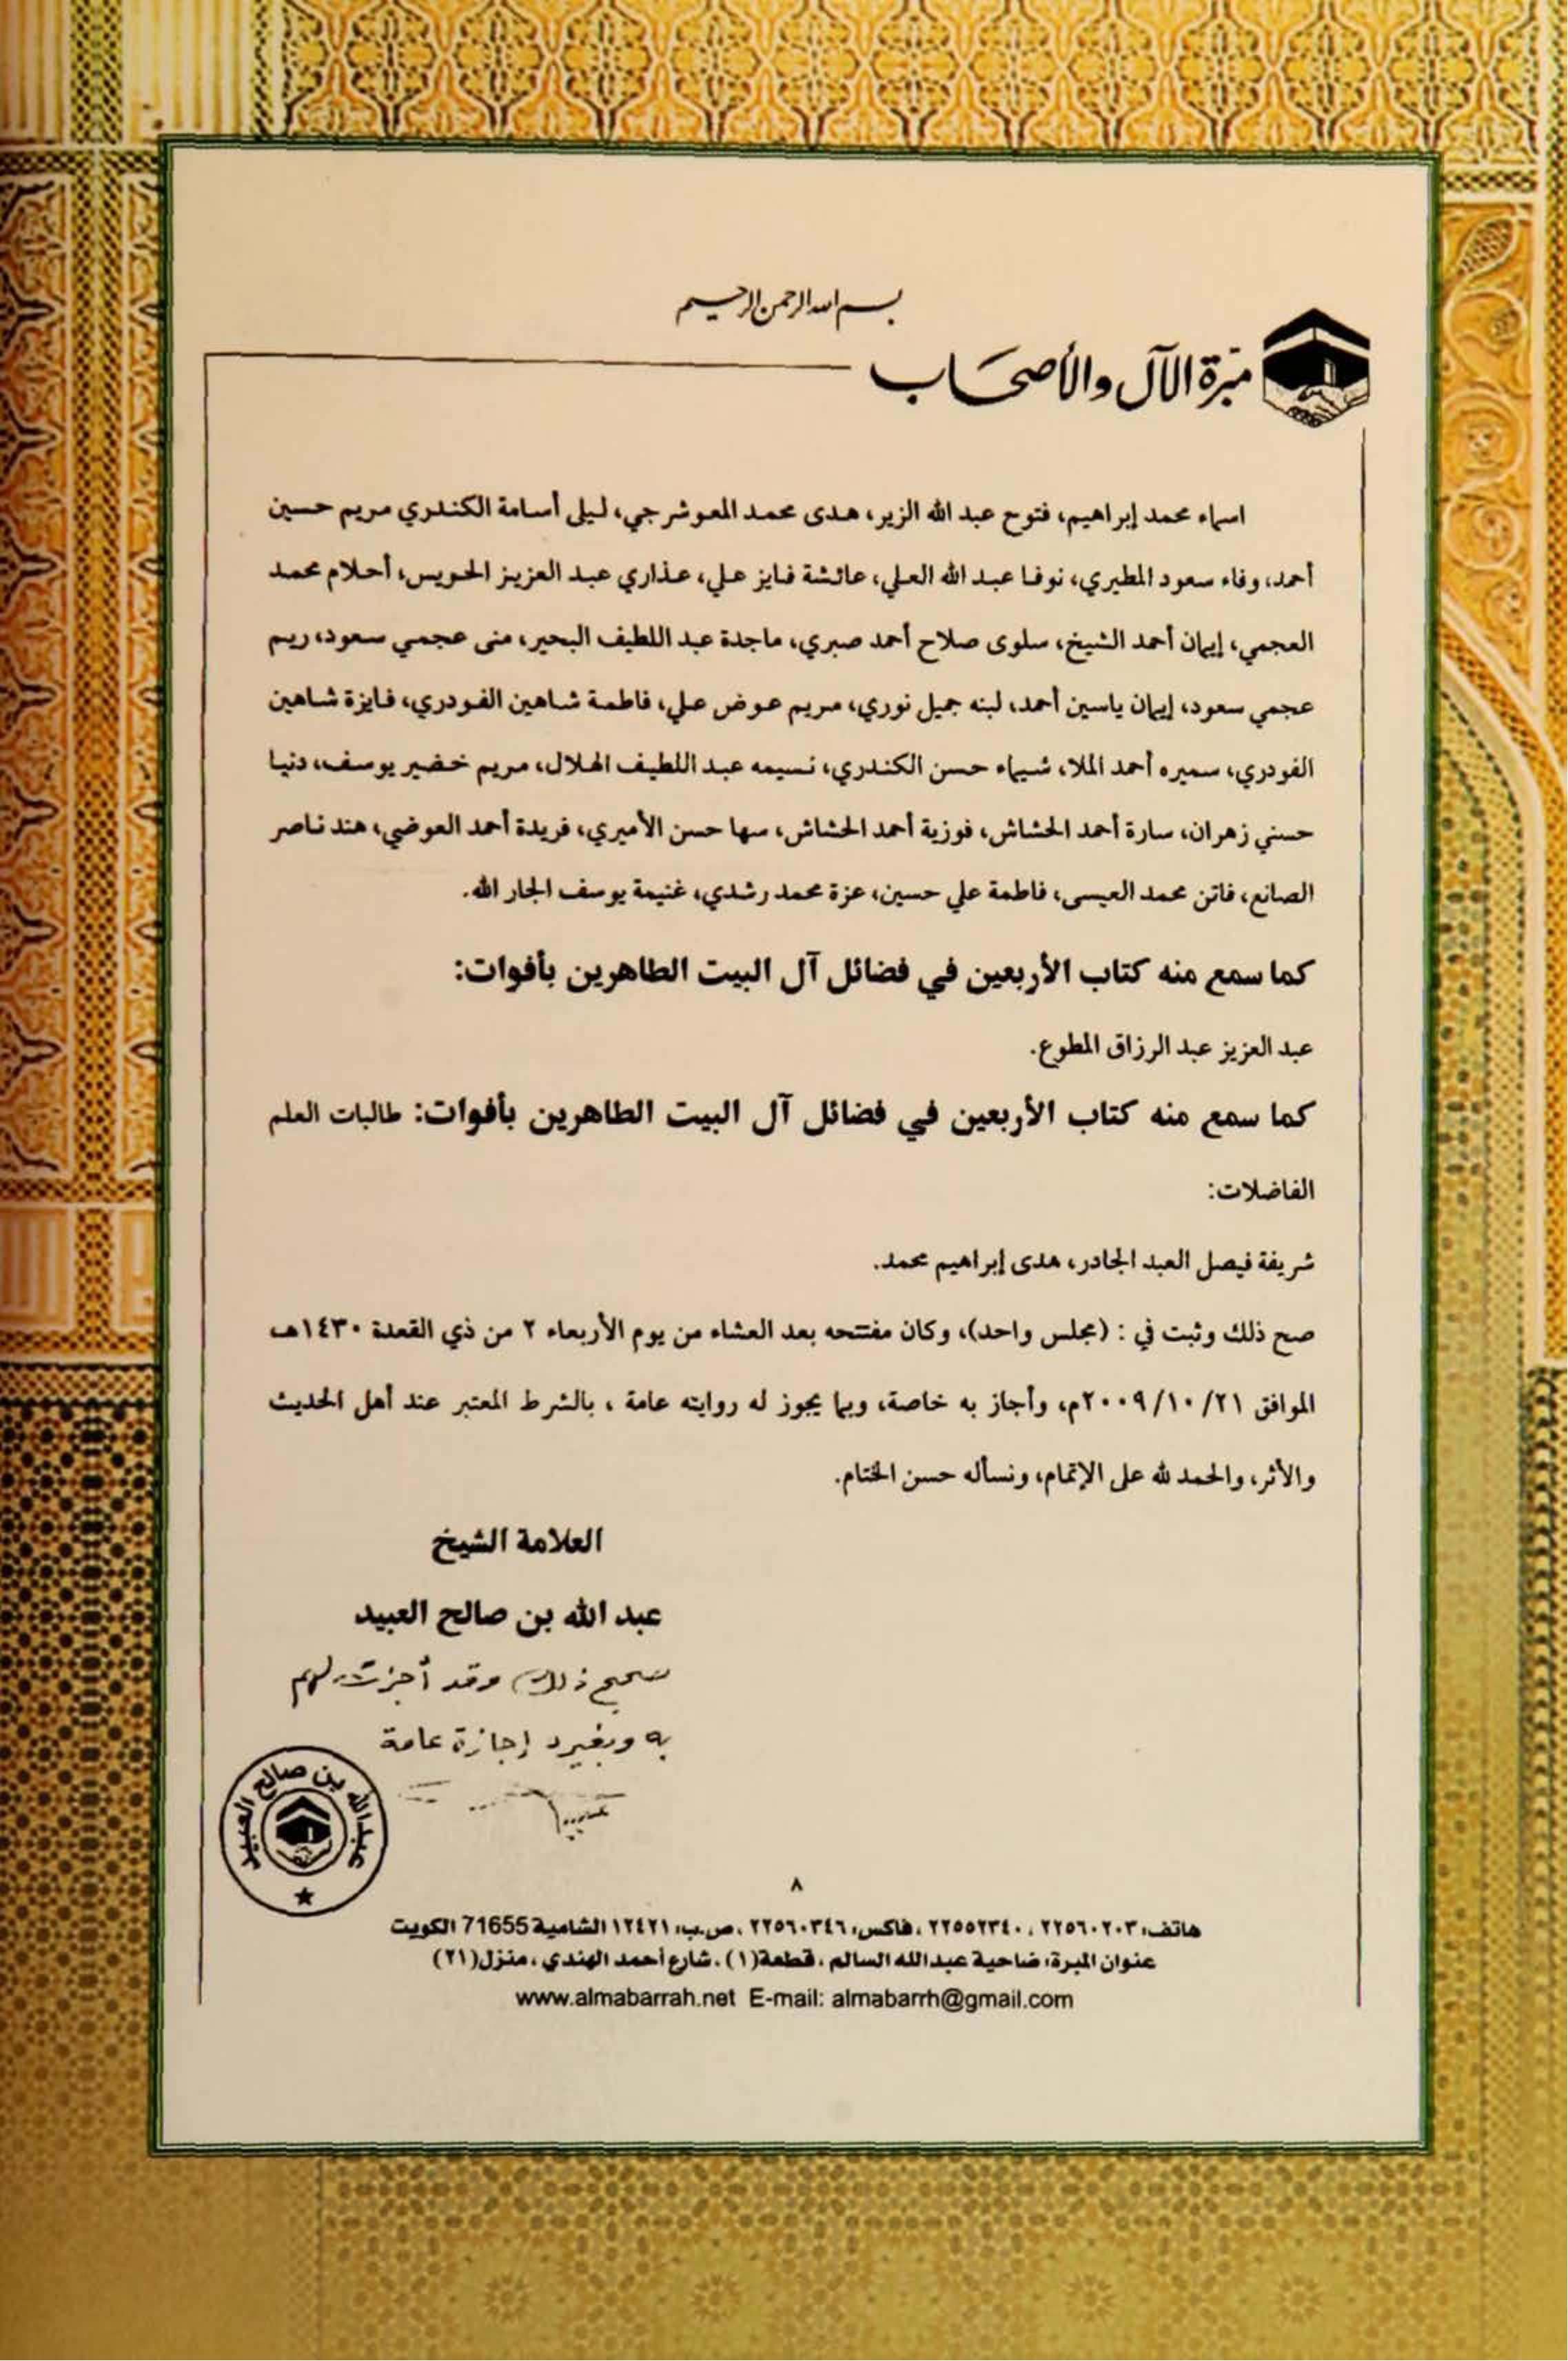 بسم الله الرحمن الرحيم
مبرة الآل والأصحاب
اسماء محمد إبراهيم، فتوح عبد الله الزير، هدى محمد المعوشرجي، ليلى أسامة الكندري مريم حسين
أحمد، وفاء سعود المطيري، نوفا عبد الله العلي، عائشة فايز علي، عذاري عبد العزيز الحويس، أحلام محمد
العجمي، إيمان أحمد الشيخ، سلوى صلاح أحمد صبري، ماجدة عبد اللطيف البحير، منى عجمي سعود، ريم
عجمي سعود، إيمان ياسين أحمد، لبنه جميل نوري، مريم عوض علي، فاطمة شاهين الفودري، فايزة شاهين
الفودري، سميره أحمد الملا، شيماء حسن الكندري، نسيمه عبد اللطيف الهلال، مريم خضير يوسف، دنيا
حسني زهران، سارة أحمد الحشاش، فوزية أحمد الحشاش، سها حسن الأميري، فريدة أحمد العوضي، هند ناصر
الصانع، فاتن محمد العيسى، فاطمة علي حسين، عزة محمد رشدي، غنيمة يوسف الجار الله.
كما سمع منه كتاب الأربعين في فضائل آل البيت الطاهرين بأفوات:
عبد العزيز عبد الرزاق المطوع.
كما سمع منه كتاب الأربعين في فضائل آل البيت الطاهرين بأفوات: طالبات العلم
الفاضلات:
شريفة فيصل العبد الجادر، هدى إبراهيم محمد.
صح ذلك وثبت في : (مجلس واحد)، وكان مفتتحه بعد العشاء من يوم الأربعاء ٢ من ذي القعدة ١٤٣٠هـ
الموافق ٢٠٠٩/١٠/٢١م، وأجاز به خاصة، وبما يجوز له روايته عامة ، بالشرط المعتبر عند أهل الحديث
والأثر، والحمد لله على الإتمام، ونسأله حسن الختام.
العلامة الشيخ
عبد الله بن صالح العبيد
صحيح ذلك وقد أجزت لهم
به وبغيره إجازة عامة
عبدالله بن صالح العبيد
٨
هاتف: ٢٢٥٦٠٢٠٣ ، ٢٢٥٥٢٣٤٠ ، فاكس: ٢٢٥٦٠٣٤٦ ، ص.ب: ١٢٤٢١ الشامية 71655 الكويت
عنوان المبرة: ضاحية عبدالله السالم ، قطعة(١) ، شارع أحمد الهندي ، منزل(٢١)
www.almabarrah.net E-mail: almabarrh@gmail.com